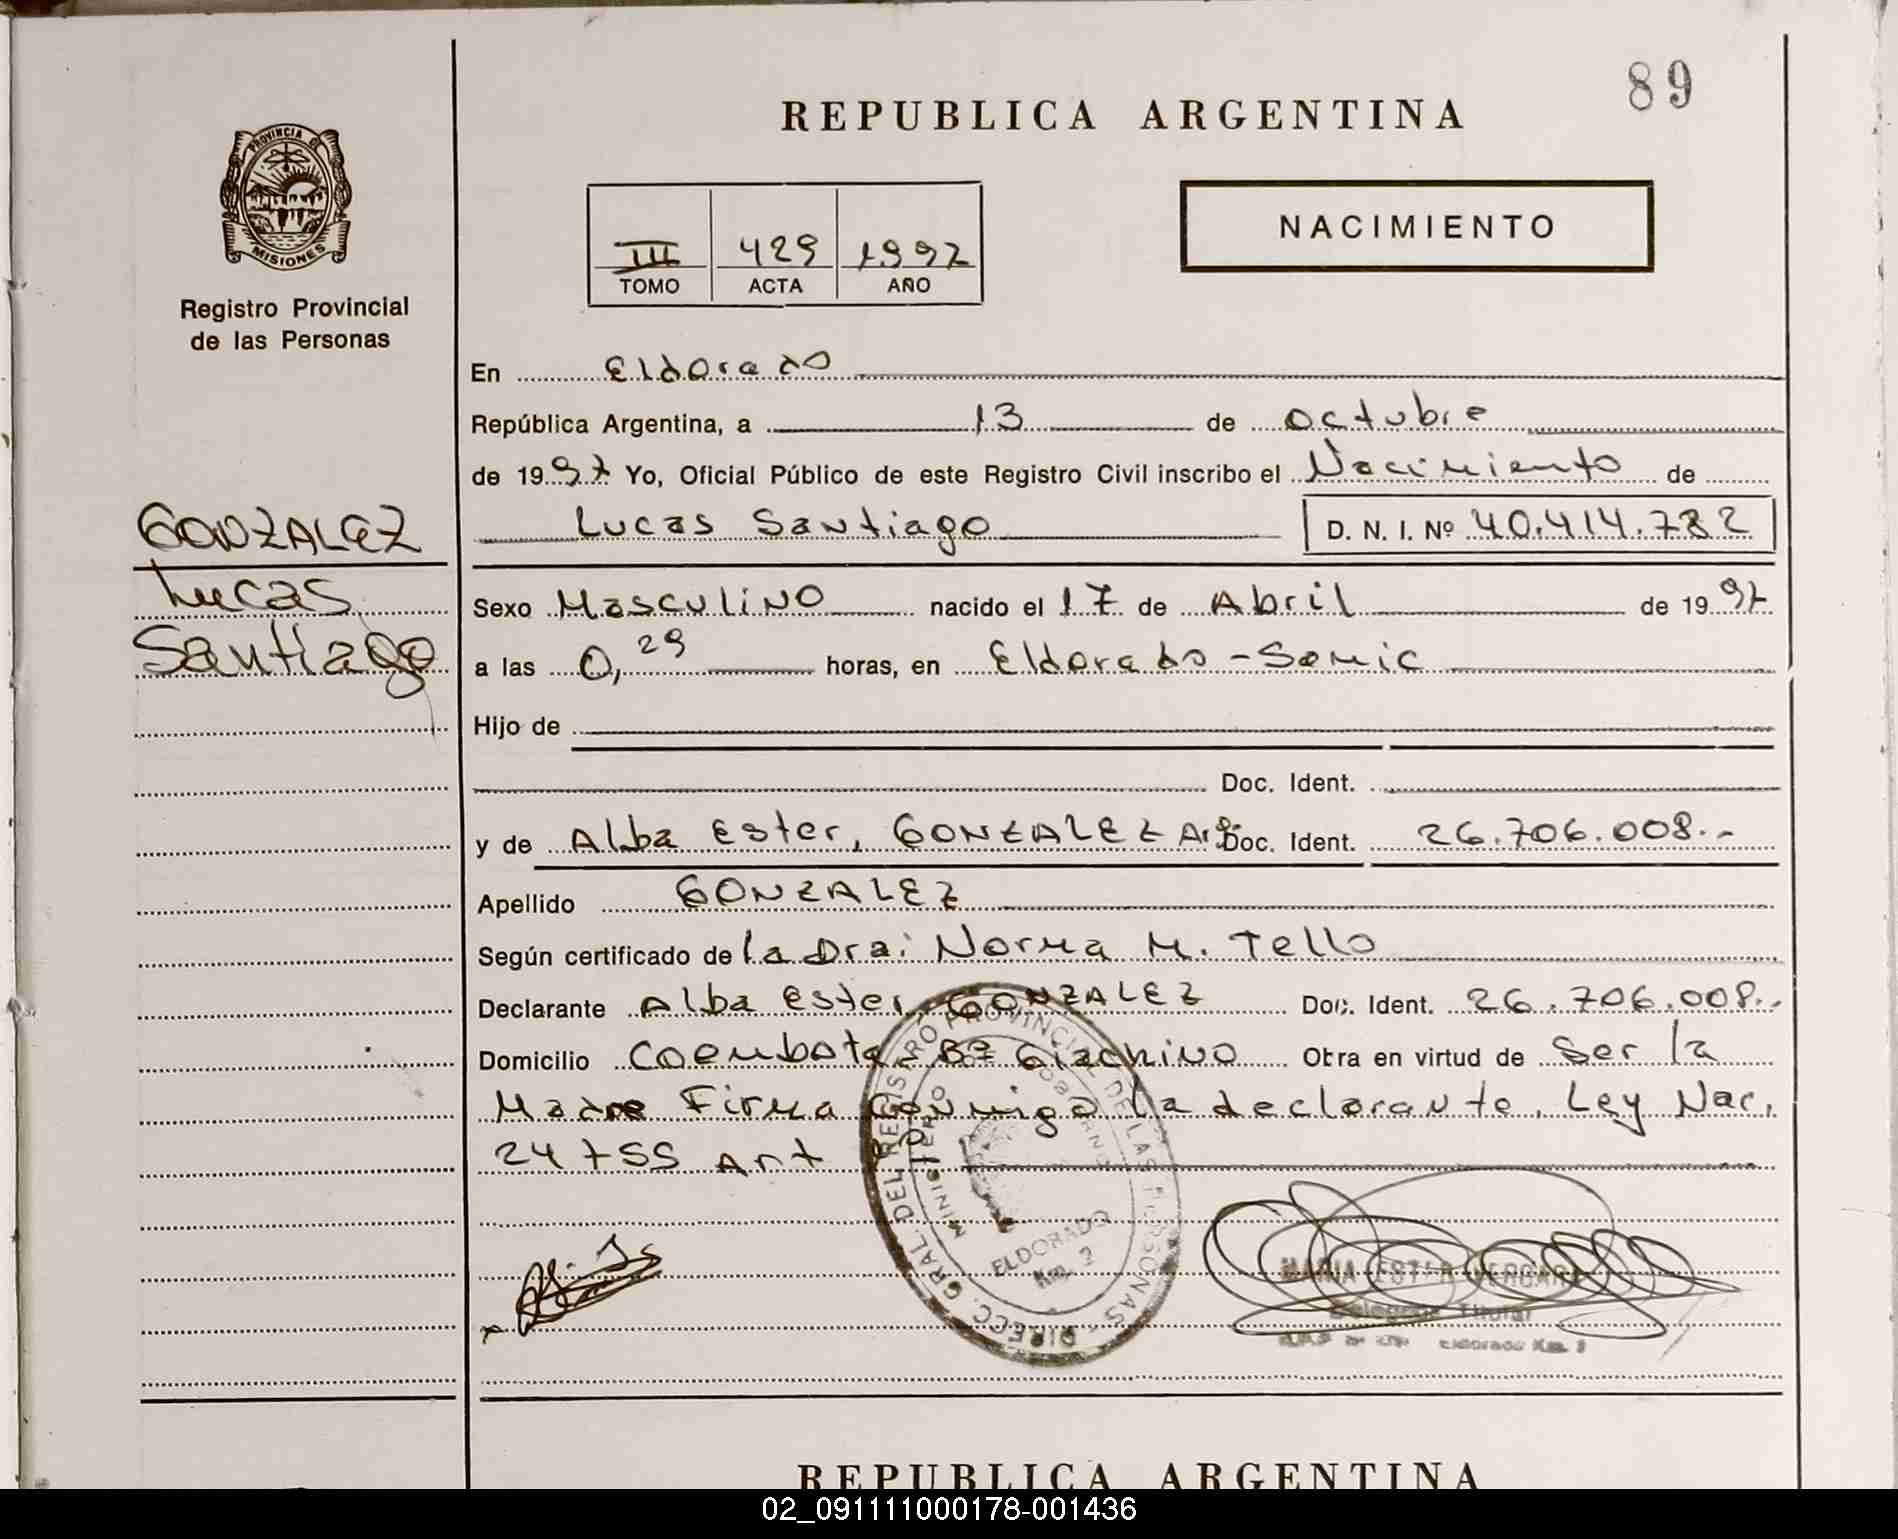 89
REPUBLICA ARGENTINA
PROVINCIA DE
MISIONES
Registro Provincial
de las Personas
NACIMIENTO
III 429 1997
TOMO ACTA AÑO
En Eldorado
República Argentina, a 13 de octubre
de 1997 Yo, Oficial Público de este Registro Civil inscribo el Nacimiento de
Lucas Santiago D. N. I. Nº 40.414.782
GONZALEZ
Lucas
Santiago
Sexo Masculino nacido el 17 de Abril de 1997
a las 0,29 horas, en Eldorado - Samic
Hijo de
Doc. Ident.
y de Alba Ester, GONZALEZ Arg. Doc. Ident. 26.706.008.-
Apellido GONZALEZ
Según certificado de la Dra: Norma M. Tello
Declarante Alba Ester, GONZALEZ Doc. Ident. 26.706.008.-
Domicilio Bº Giachino Obra en virtud de Ser la
Madre Firma Conmigo la declarante, Ley Nac.
24755 Art
DIRECC. GRAL. DEL REGISTRO PROVINCIAL DE LAS PERSONAS
MINISTERIO GOBIERNO
ELDORADO
Km. 2
MARIA ESTER VERGARA
Delegada Titular
Eldorado Km.
REPUBLICA ARGENTINA
02_091111000178-001436